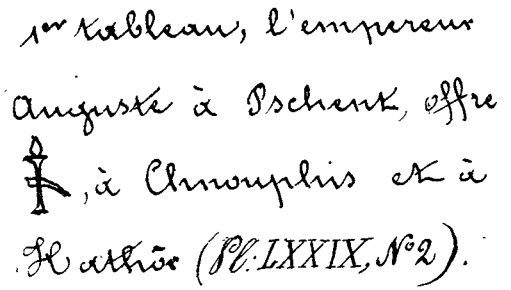 1er tableau, l'empereur
Auguste à Pschent, offre
, à Chnouphis et à
Hathôr (Pl: LXXIX, No 2).